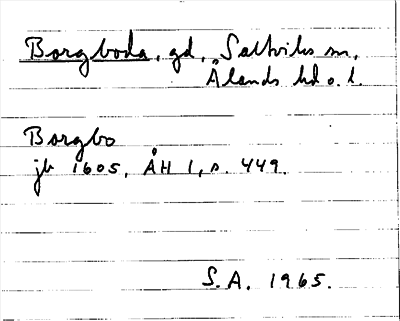 Borgboda, gd, Saltviks sn,
Ålands hd o. l.
Borgbo
jb 1605, ÅH 1, s. 449.
S.A. 1965.